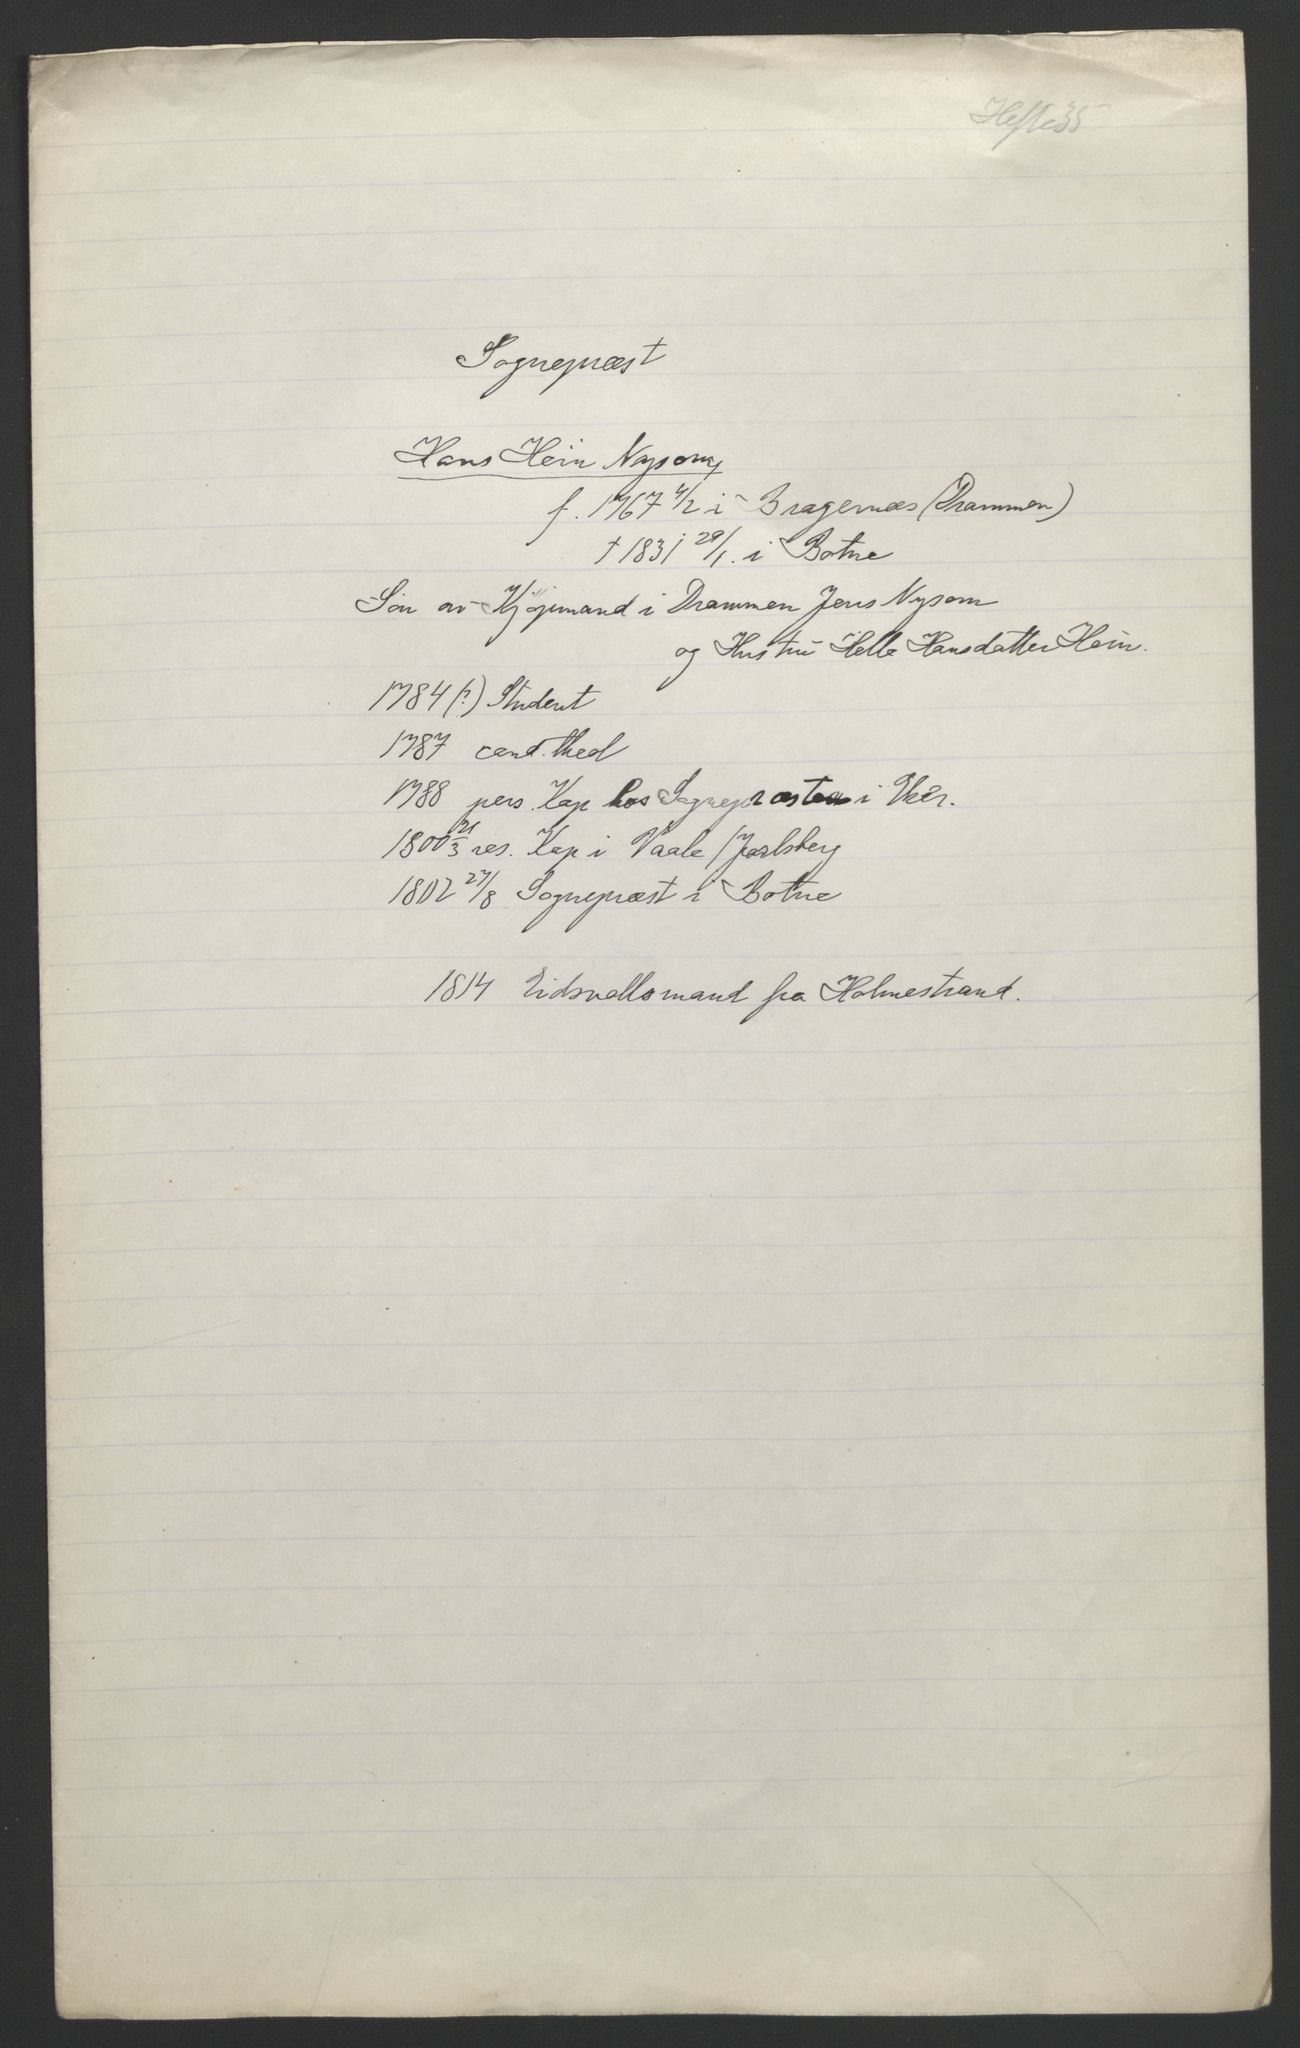 Hefte 35
Sogneprest
Hans Hein Nysom,
f. 1767 4/2 i Bragernæs (Drammen)
† 1831 29/1. i Botne
Sön av Kjöpmand i Drammen Jens Nysom
og Hustru Helle Hansdatter Hein.
1784 (?) Student
1787 cand. theol
1788 pers. Kap hos Sognepræsten i Eker.
1800 21/3 res. Kap i Vaale / Jarlsberg
1802 27/8 Sognepræst i Botne
1814 Eidsvollsmand fra Holmestrand.